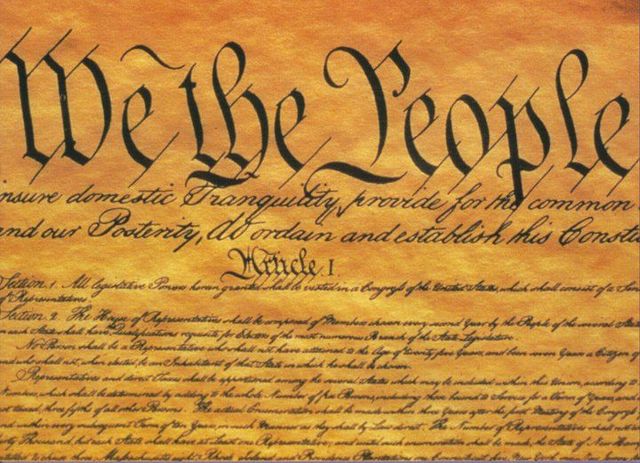 We the People
insure domestic Tranquility, provide for the common
and our Posterity, do ordain and establish this Consti
Article. I.
Section. 1. All legislative Powers herein granted shall be vested in a Congress of the United States, which shall consist of a Sen
of Representatives.
Section. 2. The House of Representatives shall be composed of Members chosen every second Year by the People of the several States
in each State shall have Qualifications requisite for Electors of the most numerous Branch of the State Legislature.
No Person shall be a Representative who shall not have attained to the Age of twenty five Years, and been seven Years a Citizen of
and who shall not, when elected, be an Inhabitant of that State in which he shall be chosen.
Representatives and direct Taxes shall be apportioned among the several States which may be included within this Union, according to
Numbers, which shall be determined by adding to the whole Number of free Persons, including those bound to Service for a Term of Years, and
not taxed, three fifths of all other Persons. The actual Enumeration shall be made within three Years after the first Meeting of the Congress
and within every subsequent Term of ten Years, in such Manner as they shall by Law direct. The Number of Representatives shall not
thirty Thousand, but each State shall have at Least one Representative; and until such enumeration shall be made, the State of New Hamp